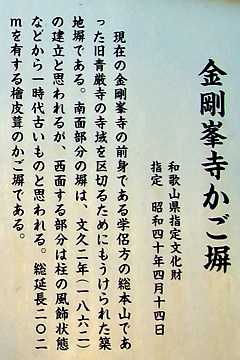 金剛峯寺かご塀
和歌山県指定文化財
指定　昭和四十年四月十四日
現在の金剛峯寺の前身である学侶方の総本山であ
った旧青厳寺の寺域を区切るためにもうけられた築
地塀である。南面部分の塀は、文久二年（一八六二）
の建立と思われるが、西面する部分は柱の風飾状態
などから一時代古いものと思われる。総延長二〇二
mを有する檜皮葺のかご塀である。